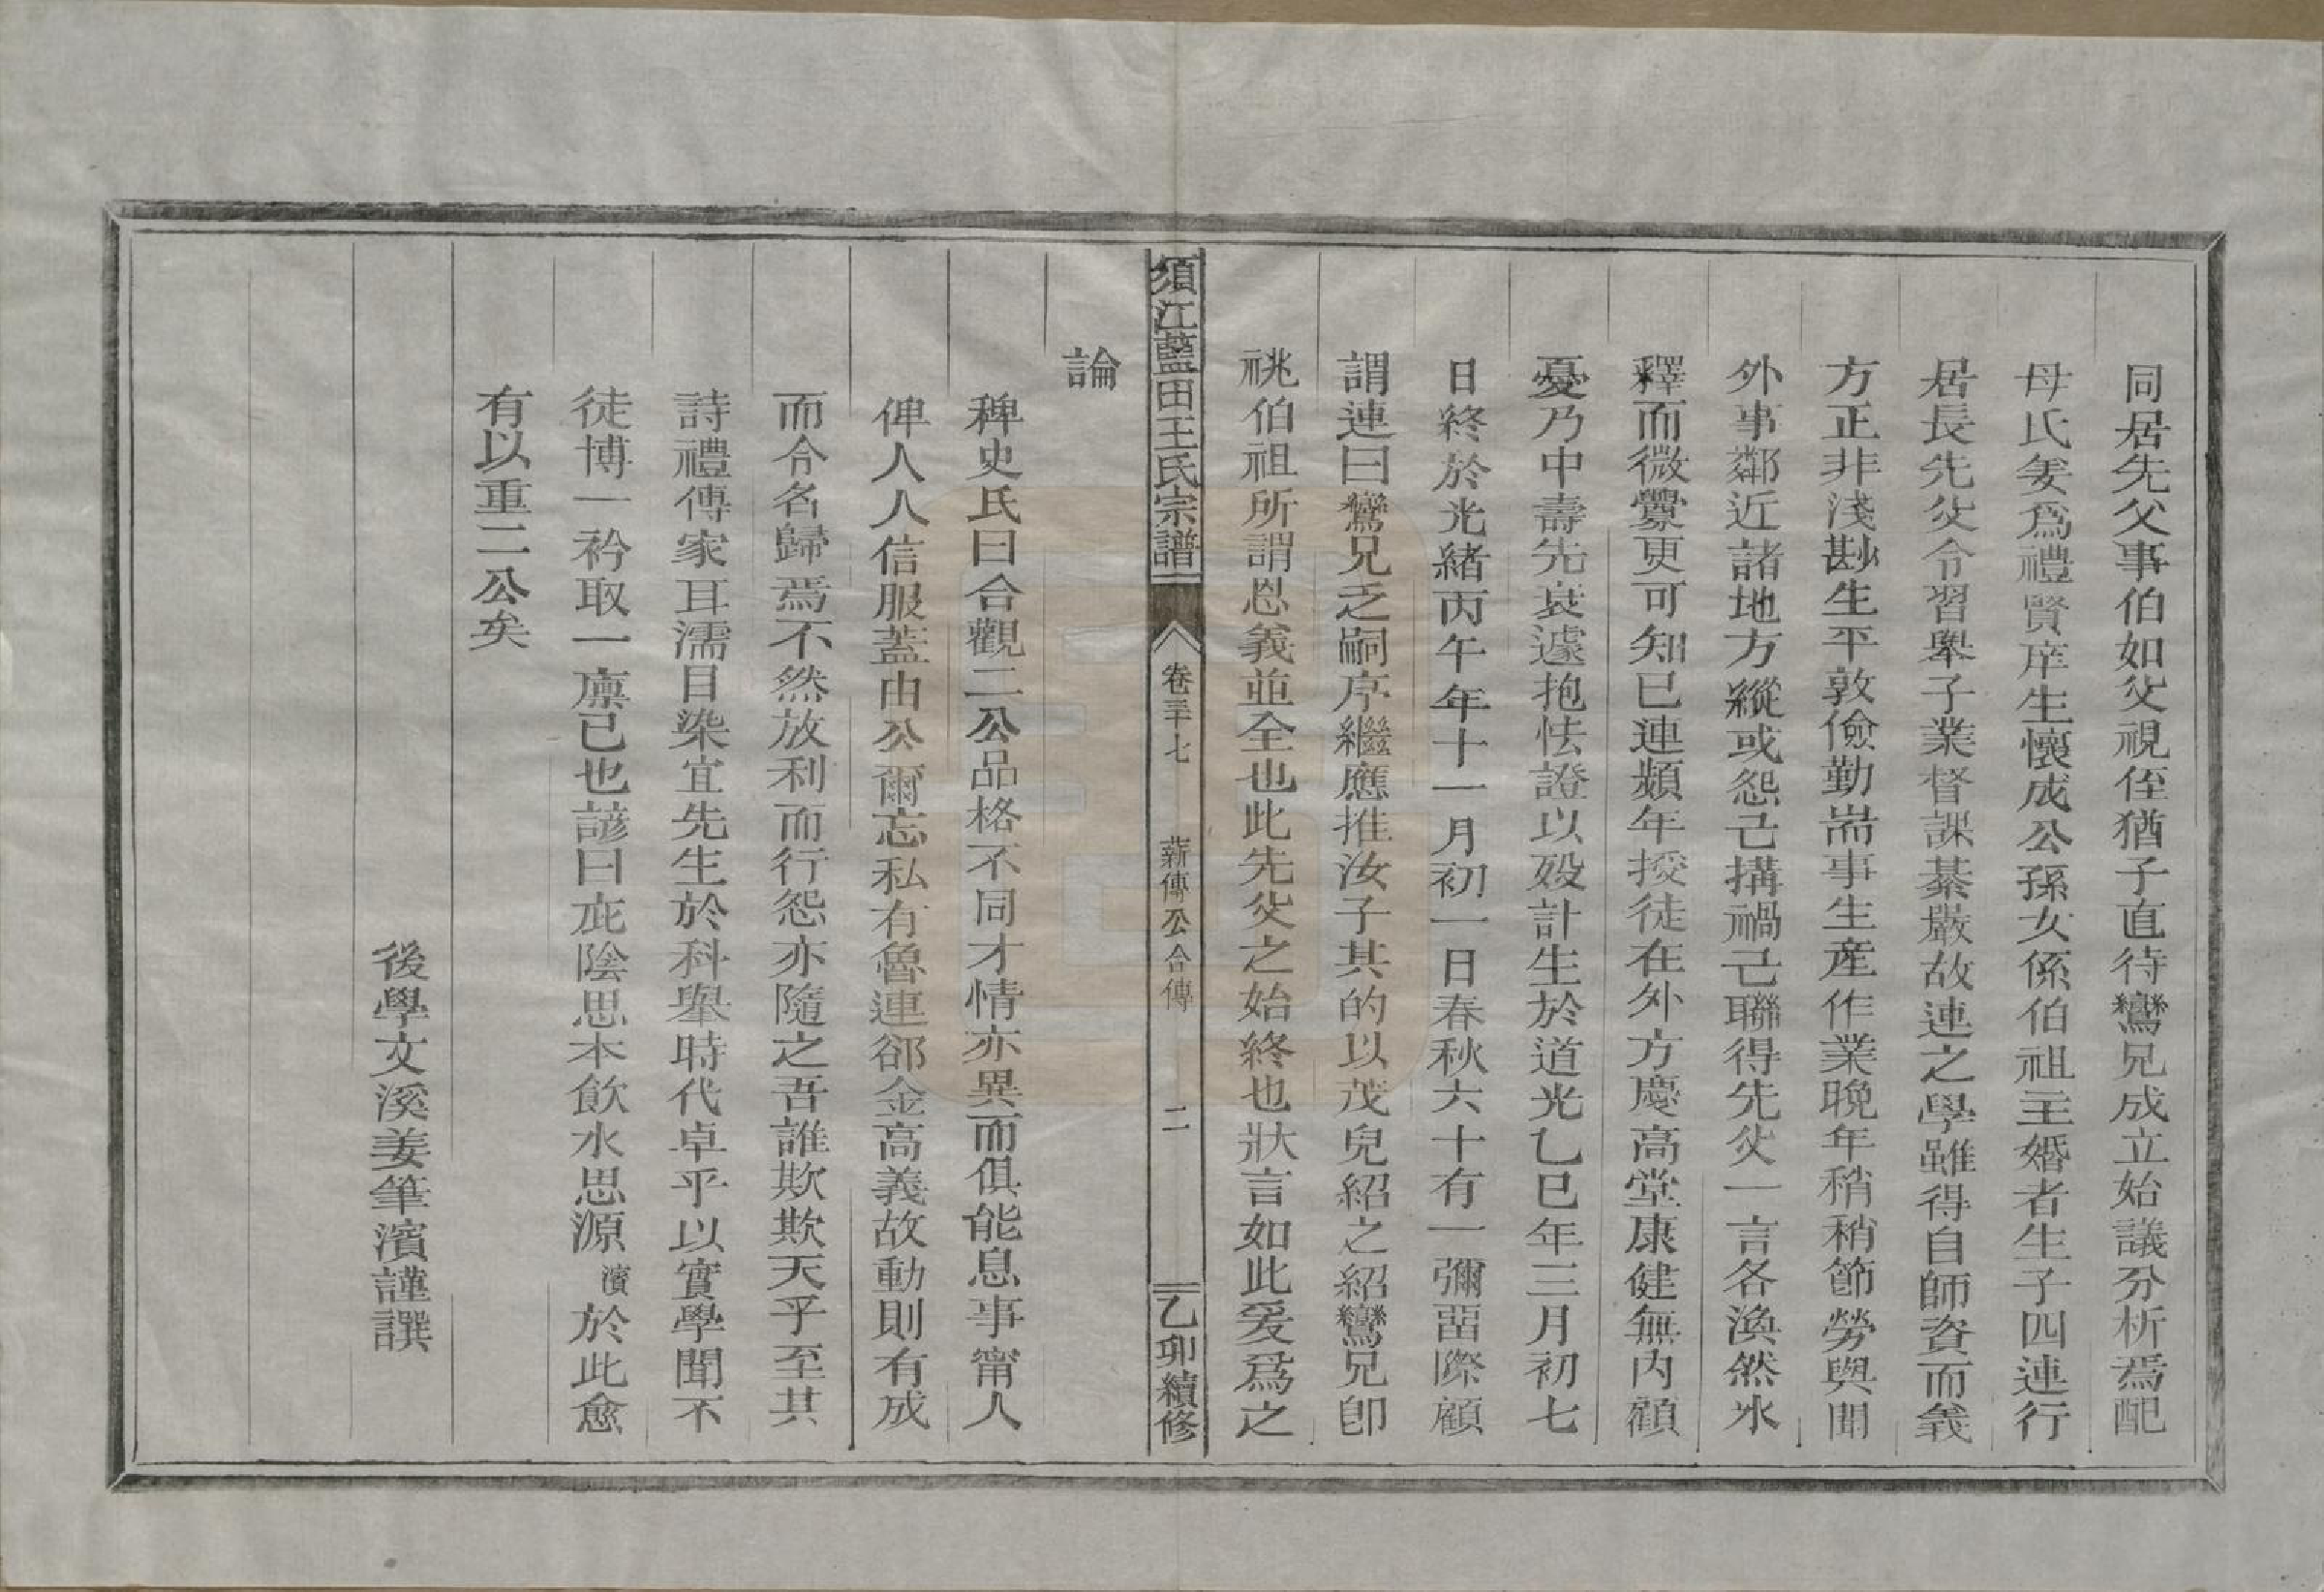 同居先父事伯如父視侄猶子直待鸞兄成立始議分析焉配
母氏姜為禮賢庠生懷成公孫女係伯祖主婚者生子四連行
居長先父令習舉子業督課綦嚴故連之學雖得自師資而義
方正非淺尠生平敦儉勤耑事生產作業晚年稍稍節勞與聞
外事鄰近諸地方縱或怨己搆禍己聯得先父一言各渙然冰
釋而微釁更可知已連頻年授徒在外方慶高堂康健無內顧
憂乃中壽先衰遽抱怯證以歿計生於道光乙巳年三月初七
日終於光緒丙午年十一月初一日春秋六十有一彌畱際顧
謂連曰鸞兄乏嗣序繼應推汝子其的以茂兒紹之紹鸞兄卽
祧伯祖所謂恩義並全也此先父之始終也狀言如此爰為之
須江藍田王氏宗譜 卷三十七 薪傳公合傳 二 乙卯續修
論
稗史氏曰合觀二公品格不同才情亦異而俱能息事甯人
俾人人信服蓋由公爾忘私有魯連郤金高義故動則有成
而令名歸焉不然放利而行怨亦隨之吾誰欺欺天乎至其
詩禮傳家耳濡目染宜先生於科舉時代卓乎以實學聞不
徒博一衿取一廩已也諺曰庇陰思木飲水思源濱於此愈
有以重二公矣
後學文溪姜筆濱謹譔